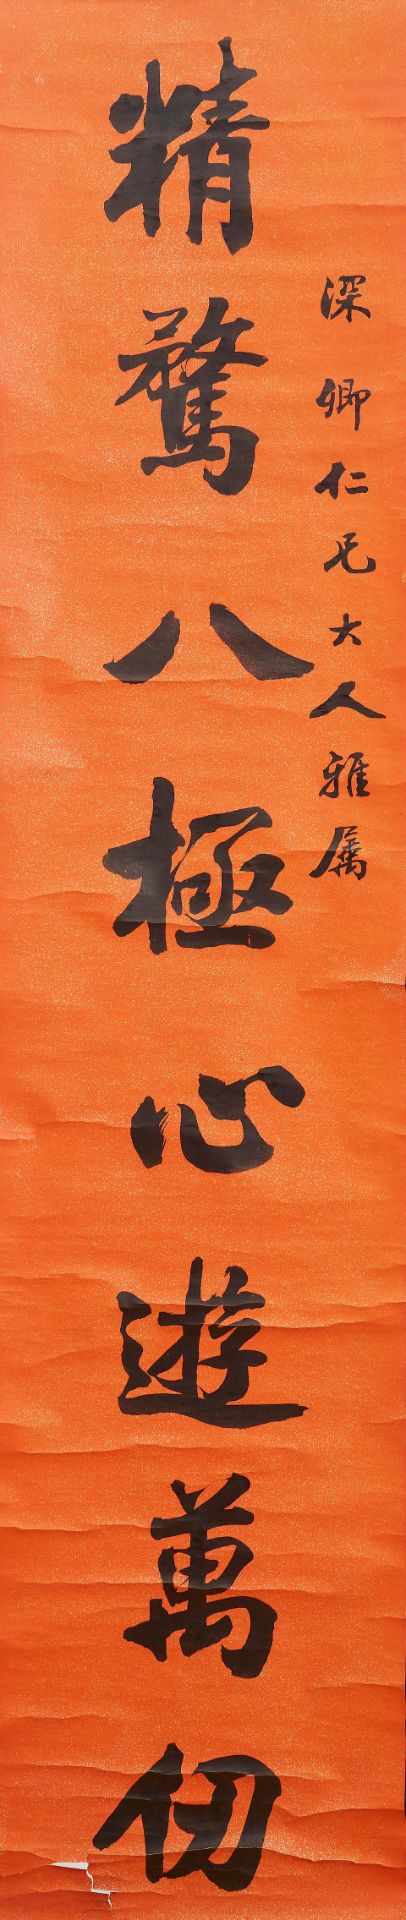 深卿仁兄大人雅属
精騖八極心遊萬仞